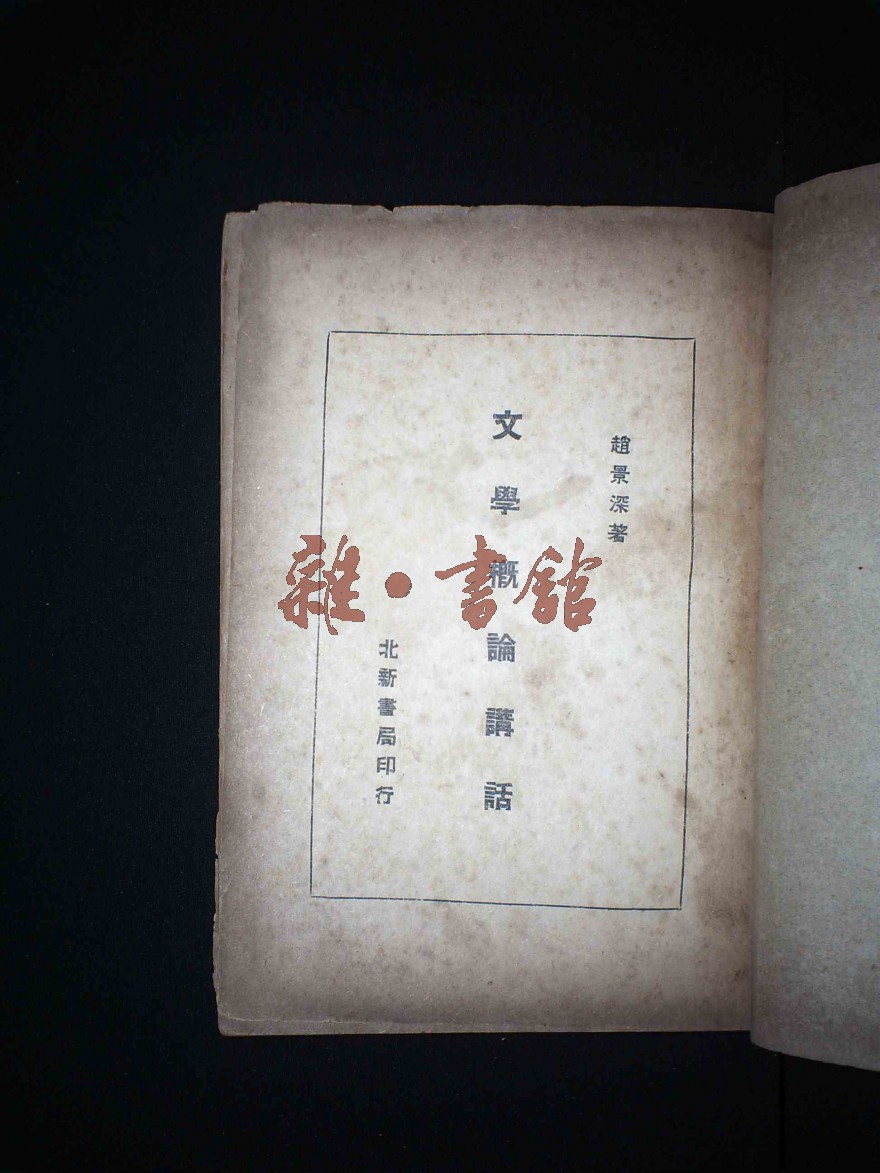 趙景深著
文學概論講話
北新書局印行
雜·書館